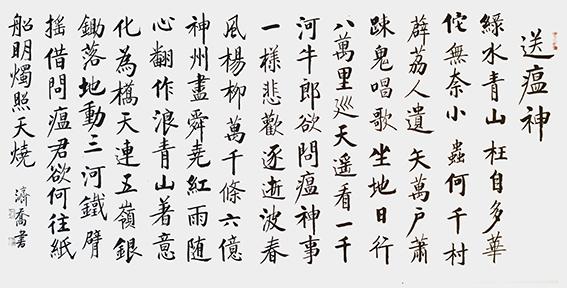 送瘟神
綠水青山枉自多華
佗無奈小蟲何千村
薜荔人遺矢萬戶蕭
踈鬼唱歌坐地日行
八萬里廵天遥看一千
河牛郎欲問瘟神事
一樣悲歡逐逝波春
風楊柳萬千條六億
神州盡舜堯紅雨随
心翻作浪青山著意
化為橋天連五嶺銀
鋤落地動三河鐵臂
摇借問瘟君欲何往紙
船明燭照天燒
濟喬書